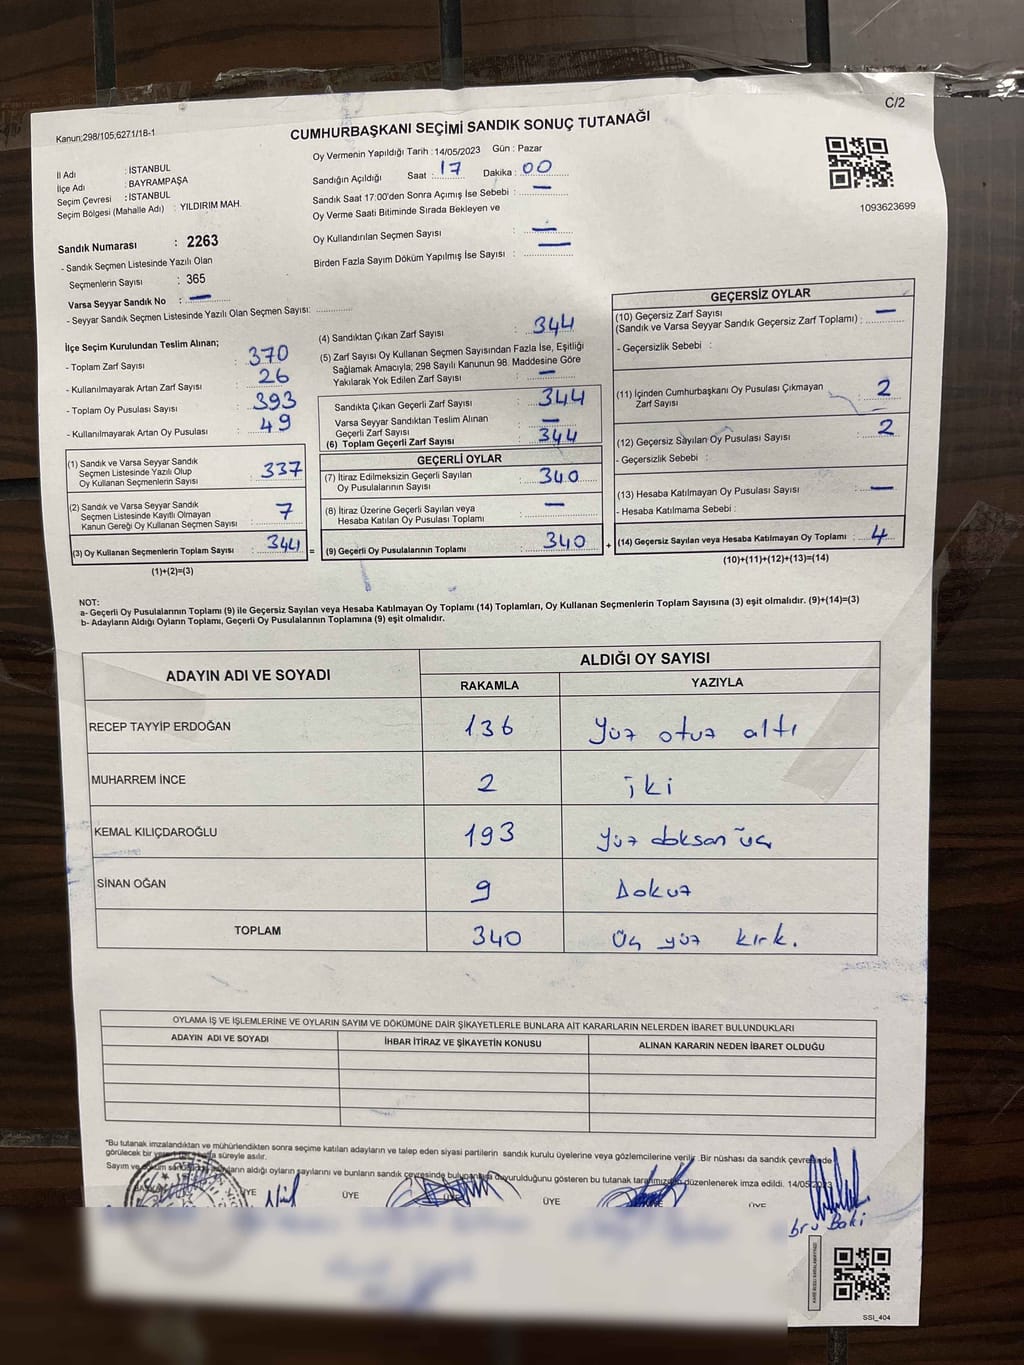 C/2
Kanun:298/105,6271/18-1
CUMHURBAŞKANI SEÇİMİ SANDIK SONUÇ TUTANAĞI
İl Adı : İSTANBUL
İlçe Adı : BAYRAMPAŞA
Seçim Çevresi : İSTANBUL
Seçim Bölgesi (Mahalle Adı) : YILDIRIM MAH.
Oy Vermenin Yapıldığı Tarih : 14/05/2023 Gün : Pazar
Sandığın Açıldığı Saat : 17 Dakika : 00
Sandık Saat 17:00'den Sonra Açımış İse Sebebi : —
Oy Verme Saati Bitiminde Sırada Bekleyen ve
Oy Kullandırılan Seçmen Sayısı : —
Birden Fazla Sayım Döküm Yapılmış İse Sayısı : —
1093623699
Sandık Numarası : 2263
- Sandık Seçmen Listesinde Yazılı Olan
Seçmenlerin Sayısı : 365
Varsa Seyyar Sandık No : —
- Seyyar Sandık Seçmen Listesinde Yazılı Olan Seçmen Sayısı:
İlçe Seçim Kurulundan Teslim Alınan;
- Toplam Zarf Sayısı : 370
- Kullanılmayarak Artan Zarf Sayısı : 26
- Toplam Oy Pusulası Sayısı : 393
- Kullanılmayarak Artan Oy Pusulası : 49
(1) Sandık ve Varsa Seyyar Sandık
Seçmen Listesinde Yazılı Olup
Oy Kullanan Seçmenlerin Sayısı : 337
(2) Sandık ve Varsa Seyyar Sandık
Seçmen Listesinde Kayıtlı Olmayan
Kanun Gereği Oy Kullanan Seçmen Sayısı : 7
(3) Oy Kullanan Seçmenlerin Toplam Sayısı : 344 =
(1)+(2)=(3)
(4) Sandıktan Çıkan Zarf Sayısı : 344
(5) Zarf Sayısı Oy Kullanan Seçmen Sayısından Fazla İse, Eşitliği
Sağlamak Amacıyla; 298 Sayılı Kanunun 98. Maddesine Göre
Yakılarak Yok Edilen Zarf Sayısı : —
Sandıkta Çıkan Geçerli Zarf Sayısı : 344
Varsa Seyyar Sandıktan Teslim Alınan
Geçerli Zarf Sayısı : —
(6) Toplam Geçerli Zarf Sayısı : 344
GEÇERLİ OYLAR
(7) İtiraz Edilmeksizin Geçerli Sayılan
Oy Pusulalarının Sayısı : 340
(8) İtiraz Üzerine Geçerli Sayılan veya
Hesaba Katılan Oy Pusulası Toplamı : —
(9) Geçerli Oy Pusulalarının Toplamı : 340 +
GEÇERSİZ OYLAR
(10) Geçersiz Zarf Sayısı
(Sandık ve Varsa Seyyar Sandık Geçersiz Zarf Toplamı) : —
- Geçersizlik Sebebi :
(11) İçinden Cumhurbaşkanı Oy Pusulası Çıkmayan
Zarf Sayısı : 2
(12) Geçersiz Sayılan Oy Pusulası Sayısı : 2
- Geçersizlik Sebebi :
(13) Hesaba Katılmayan Oy Pusulası Sayısı : —
- Hesaba Katılmama Sebebi :
(14) Geçersiz Sayılan veya Hesaba Katılmayan Oy Toplamı : 4
(10)+(11)+(12)+(13)=(14)
NOT:
a- Geçerli Oy Pusulalarının Toplamı (9) ile Geçersiz Sayılan veya Hesaba Katılmayan Oy Toplamı (14) Toplamları, Oy Kullanan Seçmenlerin Toplam Sayısına (3) eşit olmalıdır. (9)+(14)=(3)
b- Adayların Aldığı Oyların Toplamı, Geçerli Oy Pusulalarının Toplamına (9) eşit olmalıdır.
ADAYIN ADI VE SOYADI ALDIĞI OY SAYISI
RAKAMLA YAZIYLA
RECEP TAYYİP ERDOĞAN 136 yüz otuz altı
MUHARREM İNCE 2 iki
KEMAL KILIÇDAROĞLU 193 yüz doksan üç
SİNAN OĞAN 9 Dokuz
TOPLAM 340 Üç yüz kırk.
OYLAMA İŞ VE İŞLEMLERİNE VE OYLARIN SAYIM VE DÖKÜMÜNE DAİR ŞİKAYETLERLE BUNLARA AİT KARARLARIN NELERDEN İBARET BULUNDUKLARI
ADAYIN ADI VE SOYADI İHBAR İTİRAZ VE ŞİKAYETİN KONUSU ALINAN KARARIN NEDEN İBARET OLDUĞU
"Bu tutanak imzalandıktan ve mühürlendikten sonra seçime katılan adayların ve talep eden siyasi partilerin sandık kurulu üyelerine veya gözlemcilerine verilir. Bir nüshası da sandık çevresinde
görülecek bir süreyle asılır.
Sayım ve aldığı oyların sayılarını ve bunların sandık çevresinde duyurulduğunu gösteren bu tutanak tarafımızdan düzenlenerek imza edildi. 14/05/2023
ÜYE ÜYE ÜYE ÜYE ÜYE
Baki
SSI_404